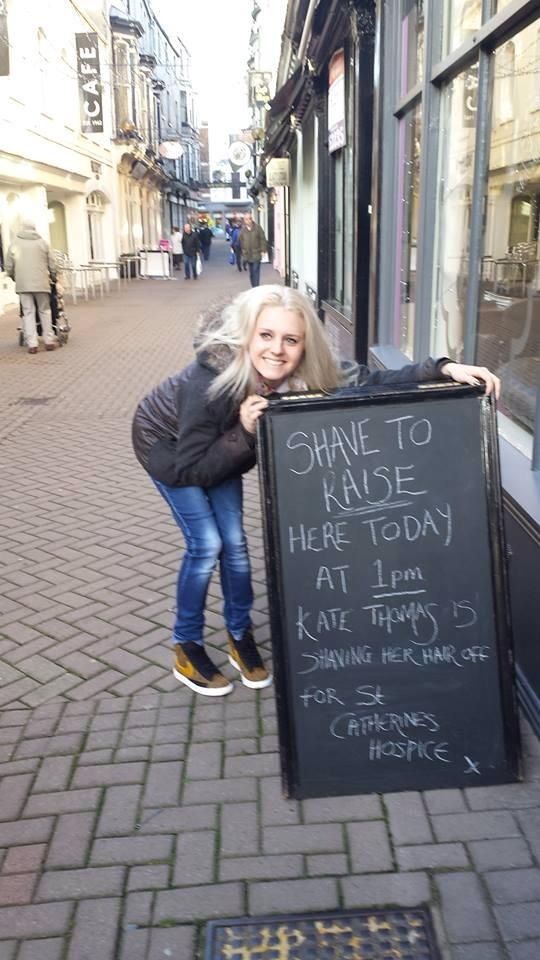 CAFE
SHAVE TO
RAISE
HERE TODAY
AT 1pm
KATE THOMAS IS
SHAVING HER HAIR OFF
FOR St
CATHERINES
HOSPICE
X